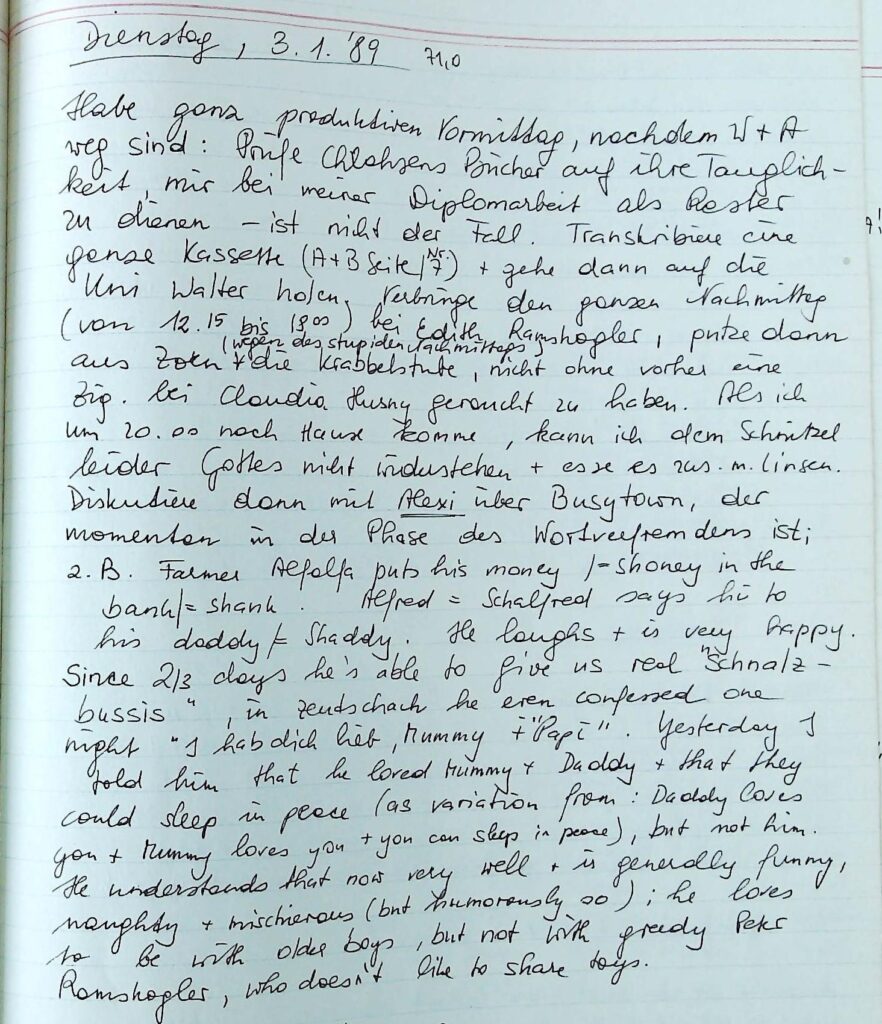 Dienstag, 3.1.'89 71,0
Habe ganz produktiven Vormittag, nachdem W + A
weg sind: Prüfe Bücher auf ihre Tauglich-
keit, mir bei meiner Diplomarbeit als
zu dienen – ist nicht der Fall. Transkribiere eine
ganze Kassette (A+B Seite/Nr. 7) + gehe dann auf die
Uni Walter holen. Verbringe den ganzen Nachmittag
(von 12.15 bis 18.00) bei Edith Ramshogler, putze dann
(wegen des stupiden Nachmittags)
aus Zorn + die Krabbelstube, nicht ohne vorher eine
Zig. bei Claudia Husny geraucht zu haben. Als ich
um 20.00 nach Hause komme, kann ich dem Schnitzel
leider Gottes nicht widerstehen + esse es zus. m. Linsen.
Diskutiere dann mit Alexi über Busytown, der
momentan in der Phase des Wortverfremdens ist;
z.B. Farmer Alfalfa puts his money /= shoney in the
bank/= shank. Alfred = Schalfred says hi to
his daddy /= Shaddy. He laughs + is very happy.
Since 2/3 days he's able to give us real "Schnalz-
bussis", in Zeutschach he even confessed one
night "I hab dich lieb, Mummy + "Papi". Yesterday I
told him that he loved Mummy + Daddy + that they
could sleep in peace (as variation from: Daddy loves
you + Mummy loves you + you can sleep in peace), but not him.
He understands that now very well + is generally funny,
naughty + mischievous (but humorously so); he loves
to be with older boys, but not with greedy Peter
Ramshogler, who doesn't like to share toys.